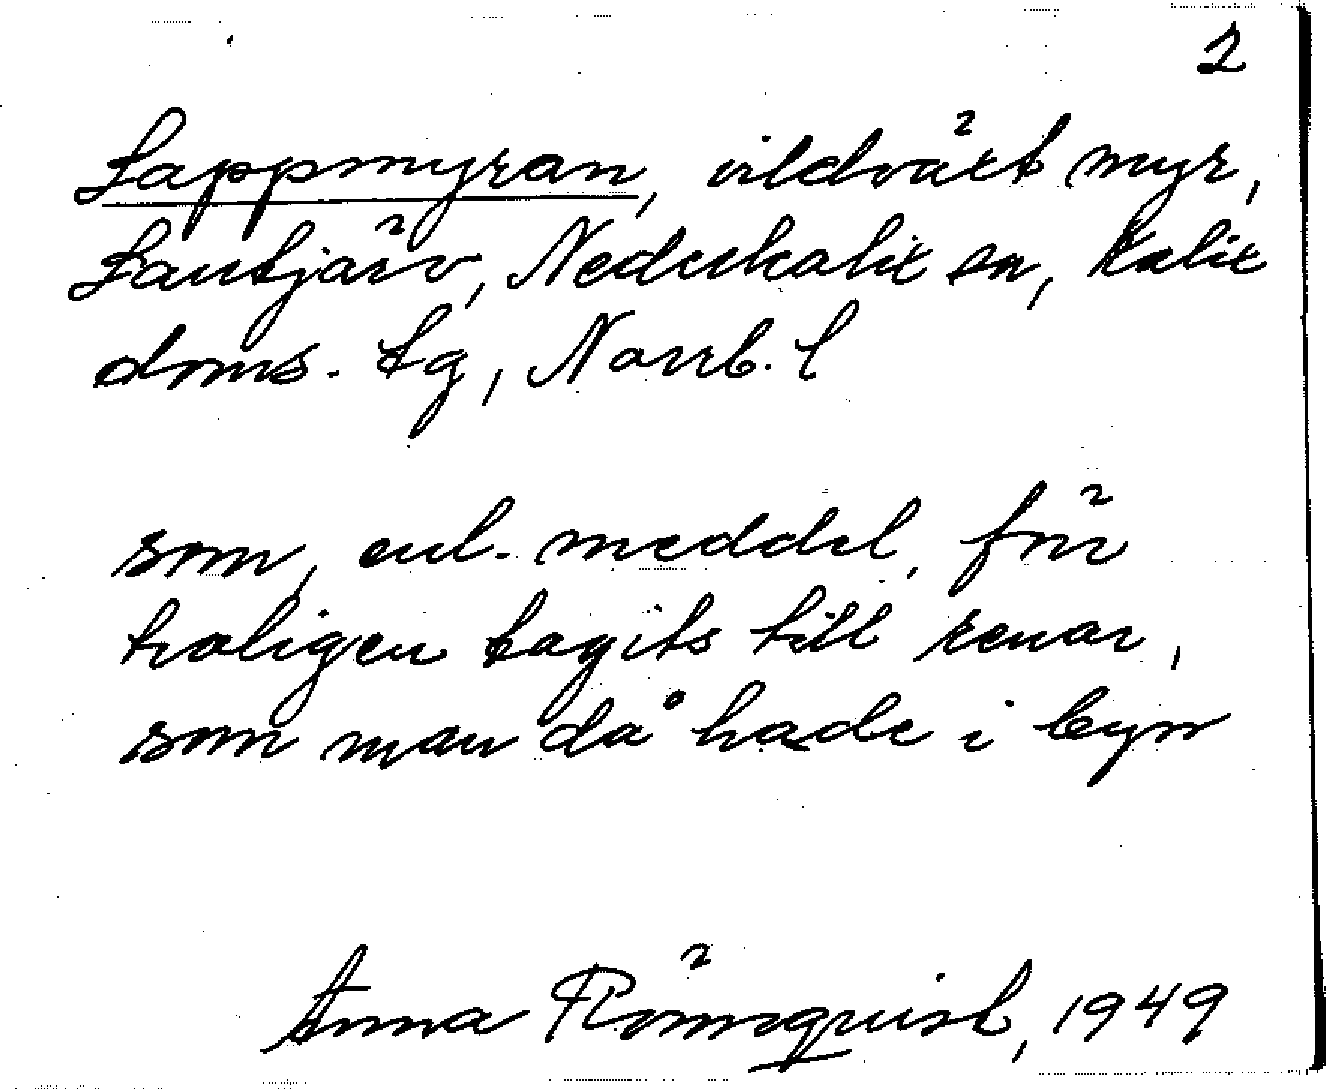 2
Lappmyran, vildvärt myr,
Lantjärv, Nederkalix sn, Kalix
doms. tg, Norrb. l
som, enl. meddel, för
traligen tagits till renar,
som man då hade i byn
Anna Rönnquist, 1949